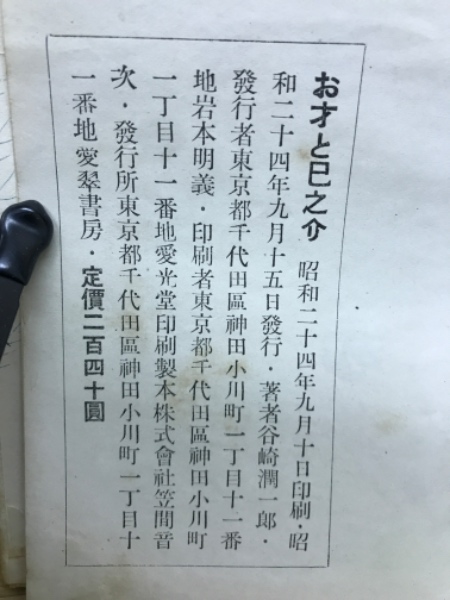 お才と巳之介 昭和二十四年九月十日印刷・昭
和二十四年九月十五日發行・著者谷崎潤一郎・
發行者東京都千代田區神田小川町一丁目十一番
地岩本明義・印刷者東京都千代田區神田小川町
一丁目十一番地愛光堂印刷製本株式會社笠間音
次・發行所東京都千代田區神田小川町一丁目十
一番地愛翠書房・定價二百四十圓